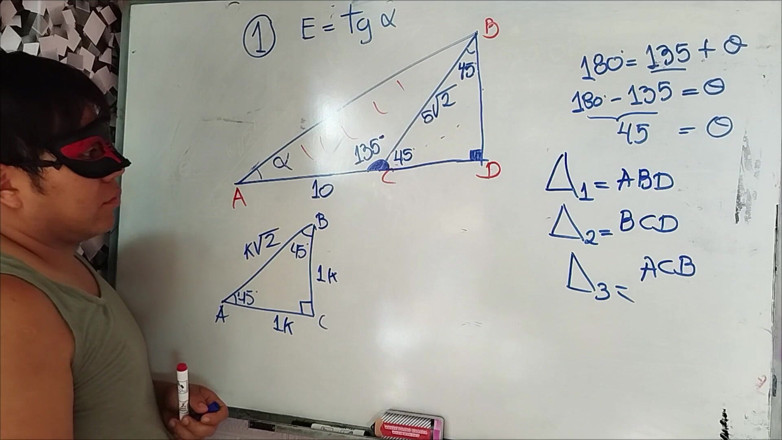 ① E = tg α
B
45
5√2
α
135°
45
A
10
C
D
B
K√2
45°
1K
45°
A
1K
C
180 = 135 + θ
180 - 135 = θ
45 = θ
△1 = ABD
△2 = BCD
△3 = ACB